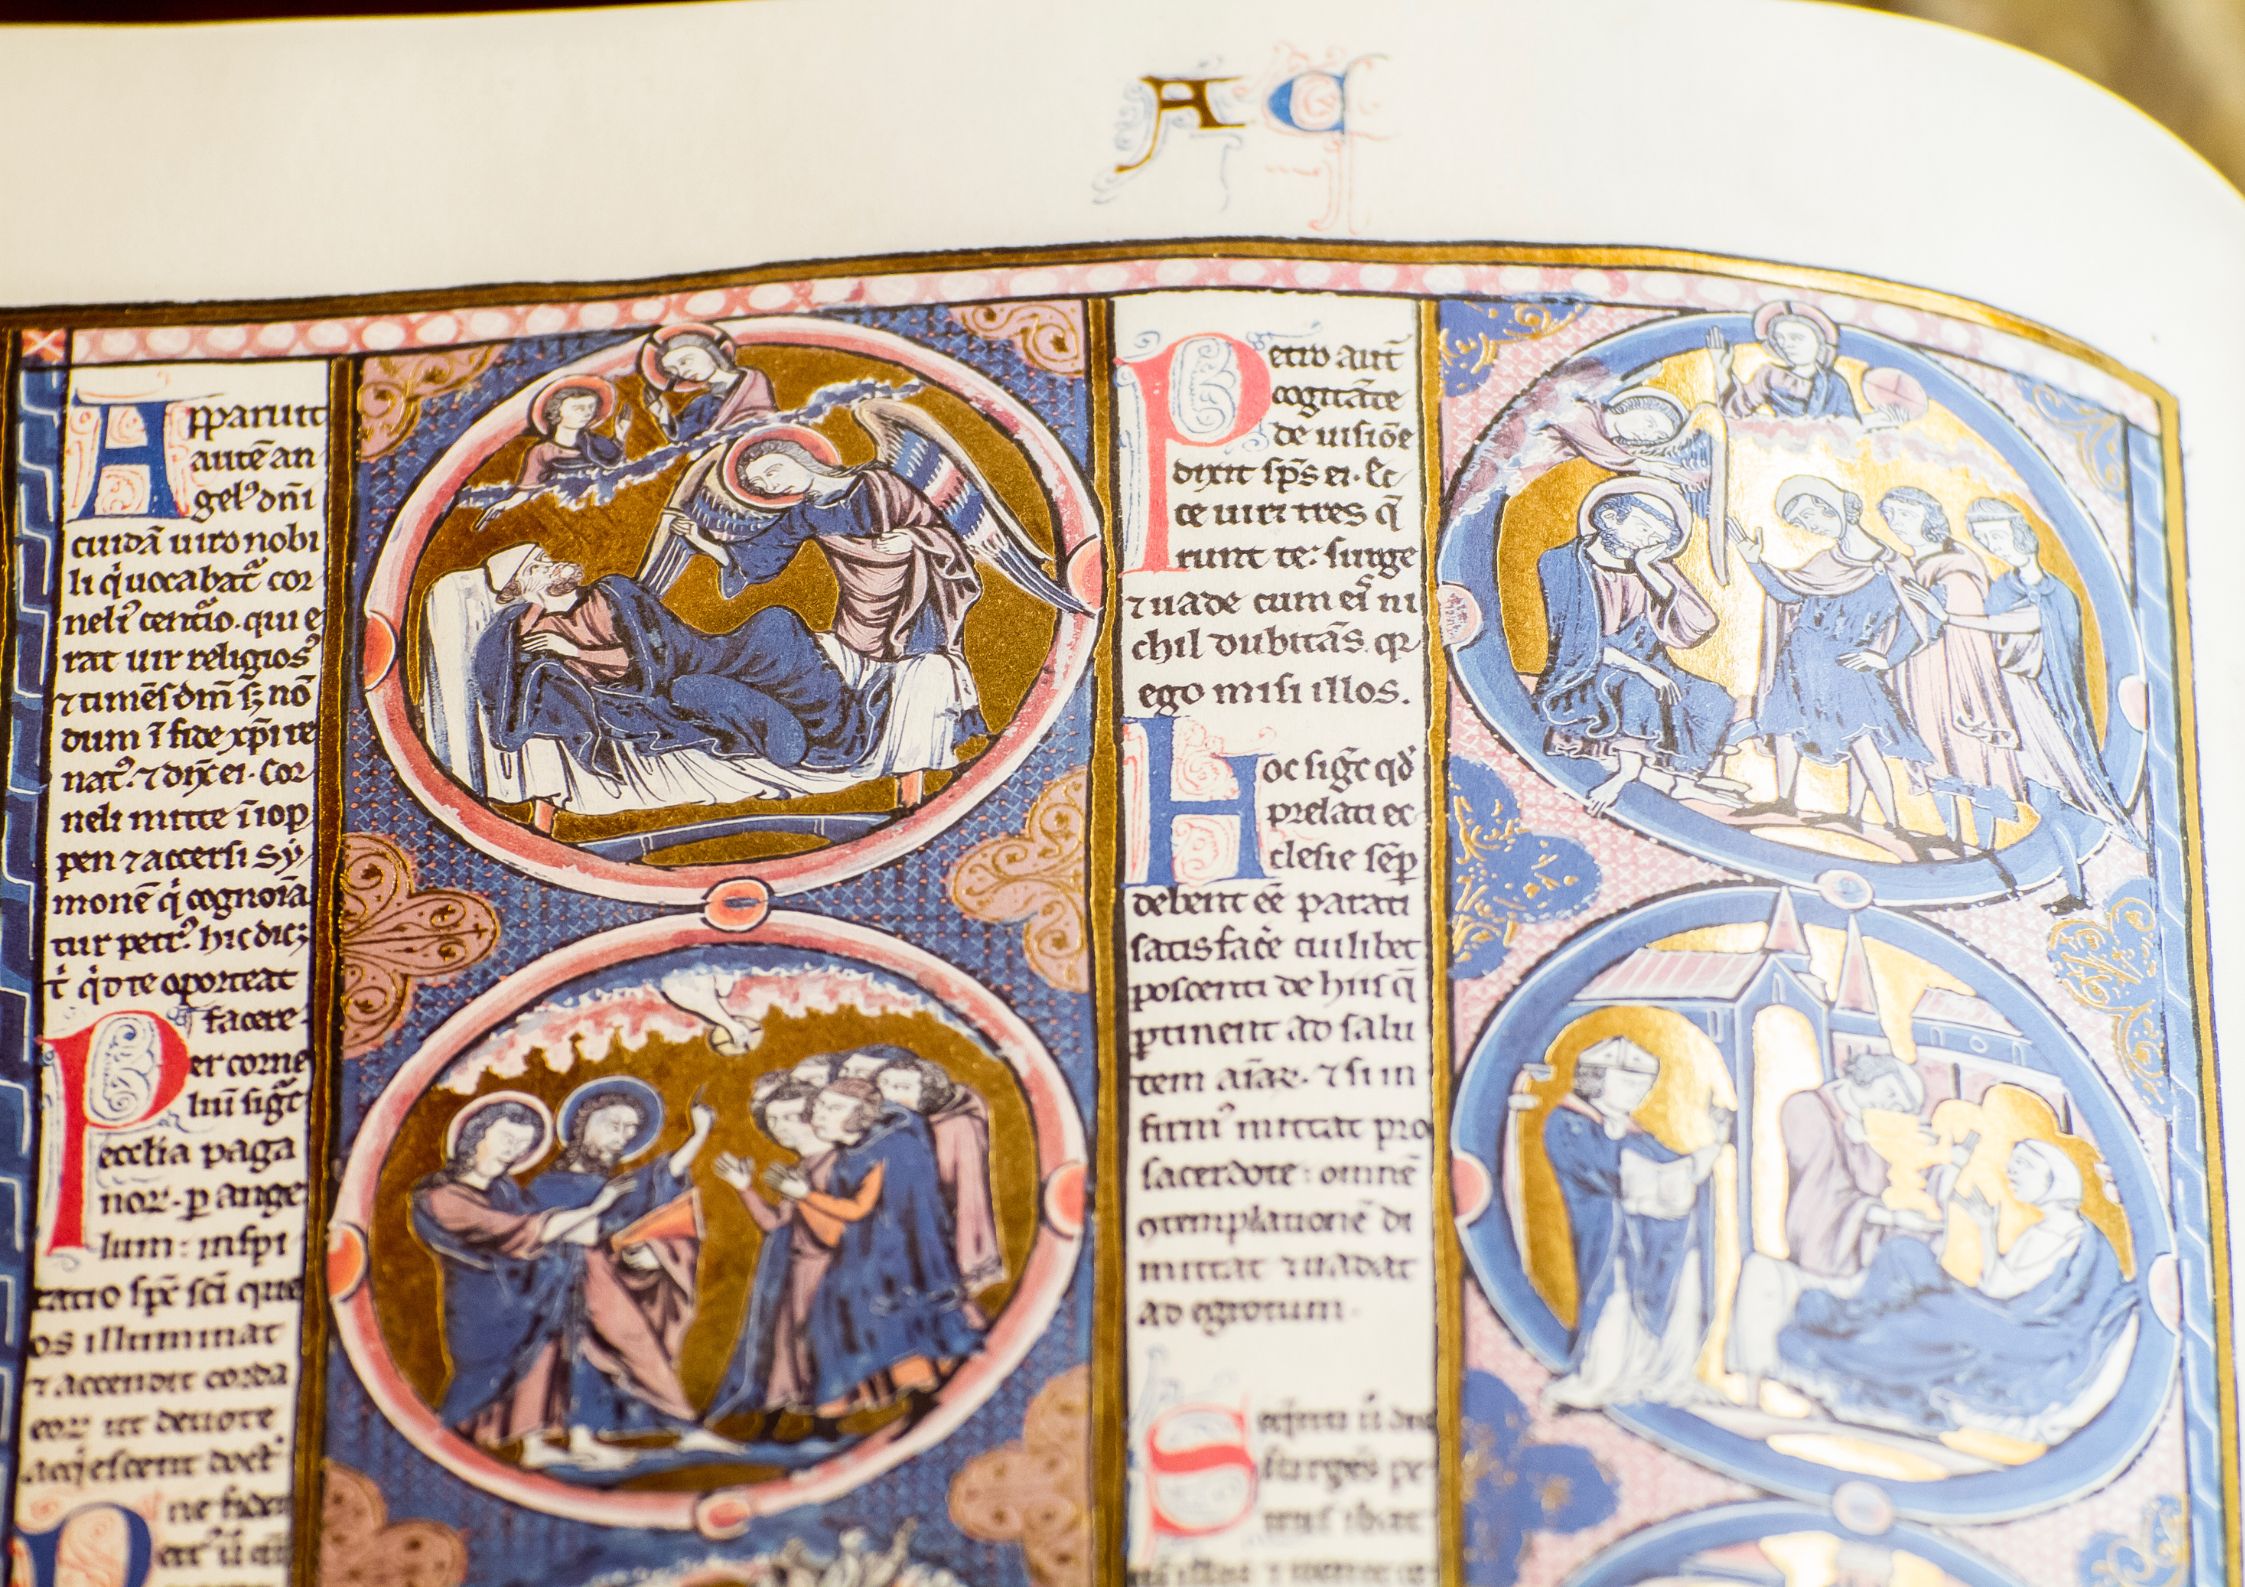 A C
Apparuit
autē an
gelꝰ dn̄i
cuidā uiro nobi
li q̇ uocabat᷑ cor
nelıꝰ centᷓio. qui e
rat uir religiosꝰ
⁊ timēs dm̄ sꝫ nō
dum ī fide xp̄i re
natꝰ. ⁊ dix̄ ei. Cor
neli mitte ī iop
pen ⁊ accersi sy
monē q̇ cognoīa
tur petrꝰ. hic dicꝫ
t̄ q̇d te oporteat
facere.
Per corne
liū sigᷓt
ecclīa paga
noꝝ. ꝑ ange
lum: inspi
ratio sp̄c sc̄i que
os illuminat
⁊ accendit corda
eoꝝ ut deuote
acq̇escent doct̓
Petro aut̄
cogitāte
de uisiōe
dixit sp̄s ei. Ec
ce uiri tres q̄
runt te: surge
⁊ uade cum eīs ni
chil dubitās. qꝛ
ego misi illos.
Hoc sigᷓt qd̓
prelati ec
clesie semꝑ
debent eē parati
satisfac̄e cuilibet
poscenti de hiis q̄
ꝑtinent ad salu
tem aīaꝝ. ⁊ si in
firmꝰ mittat pro
sacerdote: omnē
ꝯtemplationē di
mittat ⁊ uadat
ad egrotum.